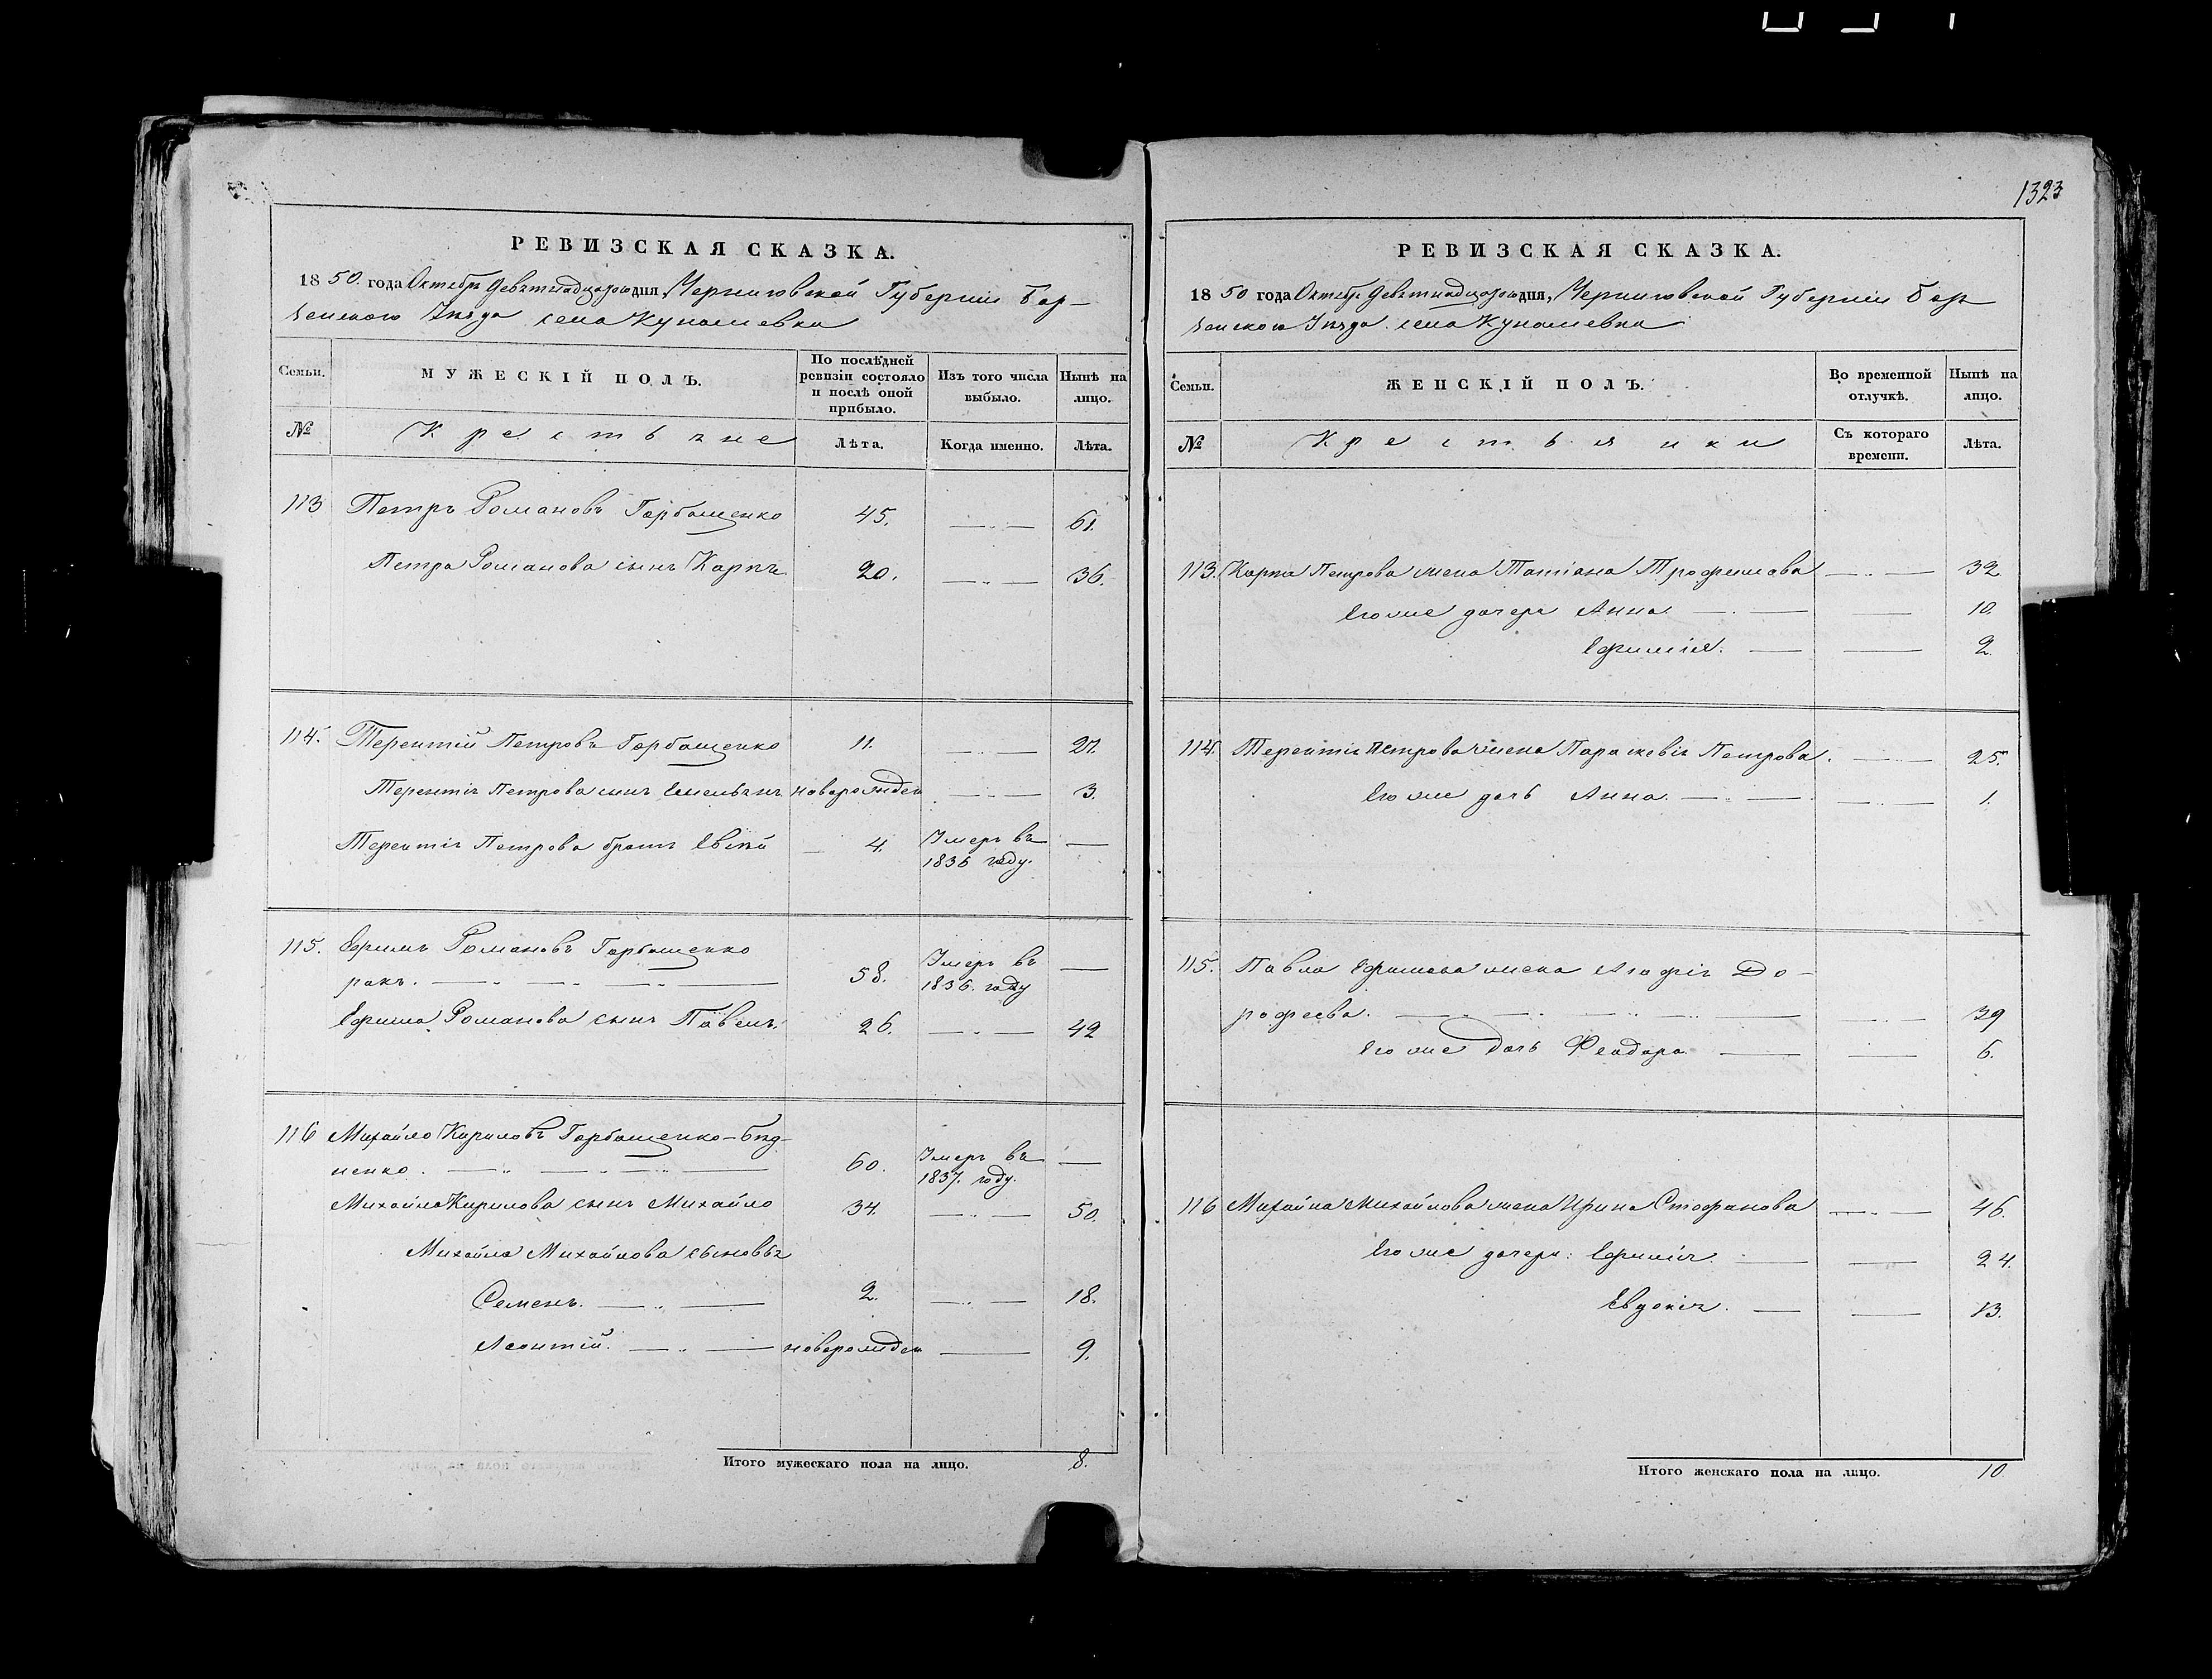 1323
РЕВИЗСКАЯ СКАЗКА.
1850. года Октября Девятнадцатого дня, Черниговской Губерніи Бор-
зенского Уѣзда села Кунашевки
Семьи. МУЖЕСКІЙ ПОЛЪ. По послѣдней ревизіи состояло и послѣ оной прибыло. Изъ того числа выбыло. Нынѣ на лицо.
№ Крестьяне Лѣта. Когда именно. Лѣта.
113 Петръ Романовъ Горбащенко 45. 61.
Петра Романова сынъ Карпъ 20. 36.
114. Терентій Петровъ Горбащенко 11. 27.
Терентія Петрова сынъ Емельянъ новорожден 3.
Терентія Петрова братъ 4. Умеръ въ
1836 году.
115. Ефимъ Романовъ Горбащенко
58. Умеръ въ
1836. году
Ефима Романова сынъ Павелъ. 26. 42
116 Михайло Кириловъ Горбащенко-Бѣд-
ненко. 60. Умеръ въ
1837. году.
Михайла Кирилова сынъ Михайло 34. 50.
Михайла Михайлова сыновья
Семенъ. 2. 18.
Леонтій. новорожден 9.
Итого мужескаго пола на лицо. 8.
РЕВИЗСКАЯ СКАЗКА.
1850 года Октября Девятнадцатого дня, Черниговской Губерніи Бор
зенского Уѣзда села Кунашевки
Семьи. ЖЕНСКІЙ ПОЛЪ. Во временной отлучкѣ. Нынѣ на лицо.
№ Крестьянки Съ котораго времени. Лѣта.
113. Карпа Петрова жена Татіана Трофимова 32.
Его же дочери Анна 10.
Ефимія. 2.
114. Терентія Петрова жена Параскевія Петрова. 25.
Его же дочь Анна. 1.
115. Павла Ефимова жена Агафія До-
рофеева. 39
Его же дочь Феодора 6.
116 Михайла Михайлова жена Ирина Стефанова 46.
Его же дочери: Ефимія. 24.
Евдокія. 13.
Итого женскаго пола на лицо. 10.